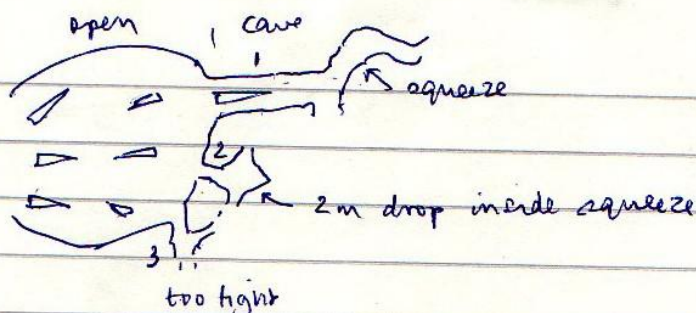 open cave
1
squeeze
2
2m drop inside squeeze
3
too tight